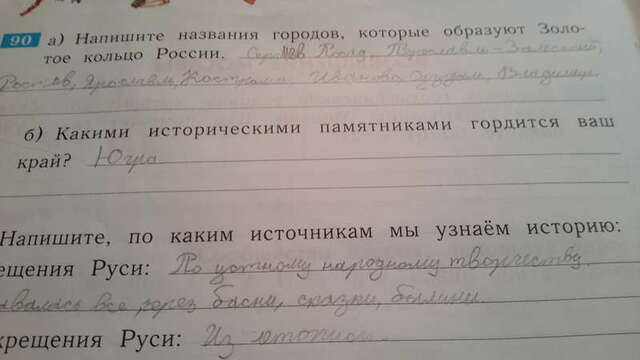 90 а) Напишите названия городов, которые образуют Золо-
тое кольцо России. Сергиев Посад, Переславль-Залесский,
Ростов, Ярославль, Кострома, Иваново Суздаль, Владимир.
б) Какими историческими памятниками гордится ваш
край? Югра
Напишите, по каким источникам мы узнаём историю:
ещения Руси: По устному народному творчеству.
авалась все через басни, сказки, былины.
крещения Руси: Из летописи.